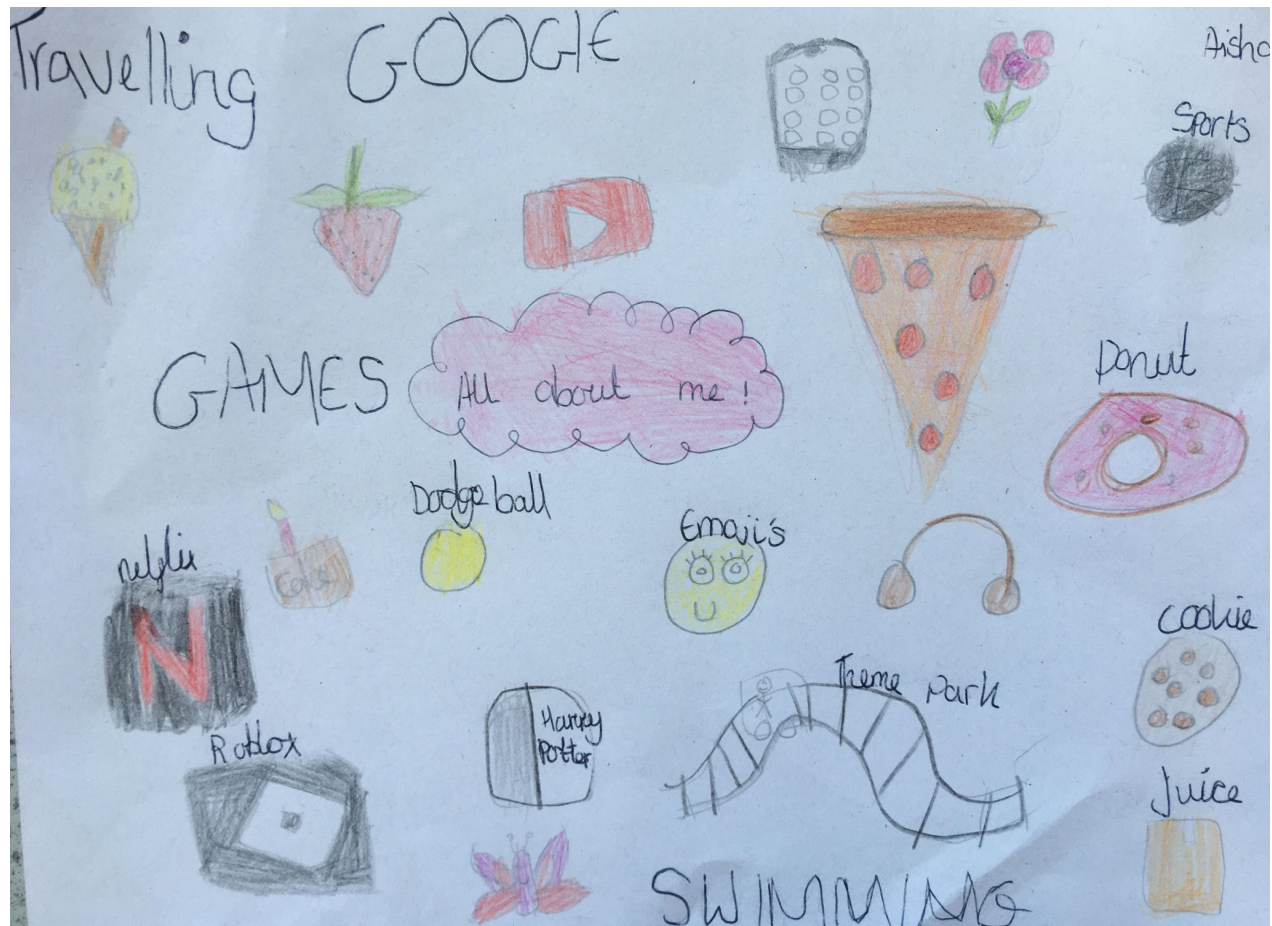 Travelling
GOOGlE
Aisha
Sports
GAMES
All about me !
Donut
Dodgeball
Emoji's
netflix
N
Cake
Cookie
Theme Park
Harry
Potter
Roblox
Juice
SWIMMING